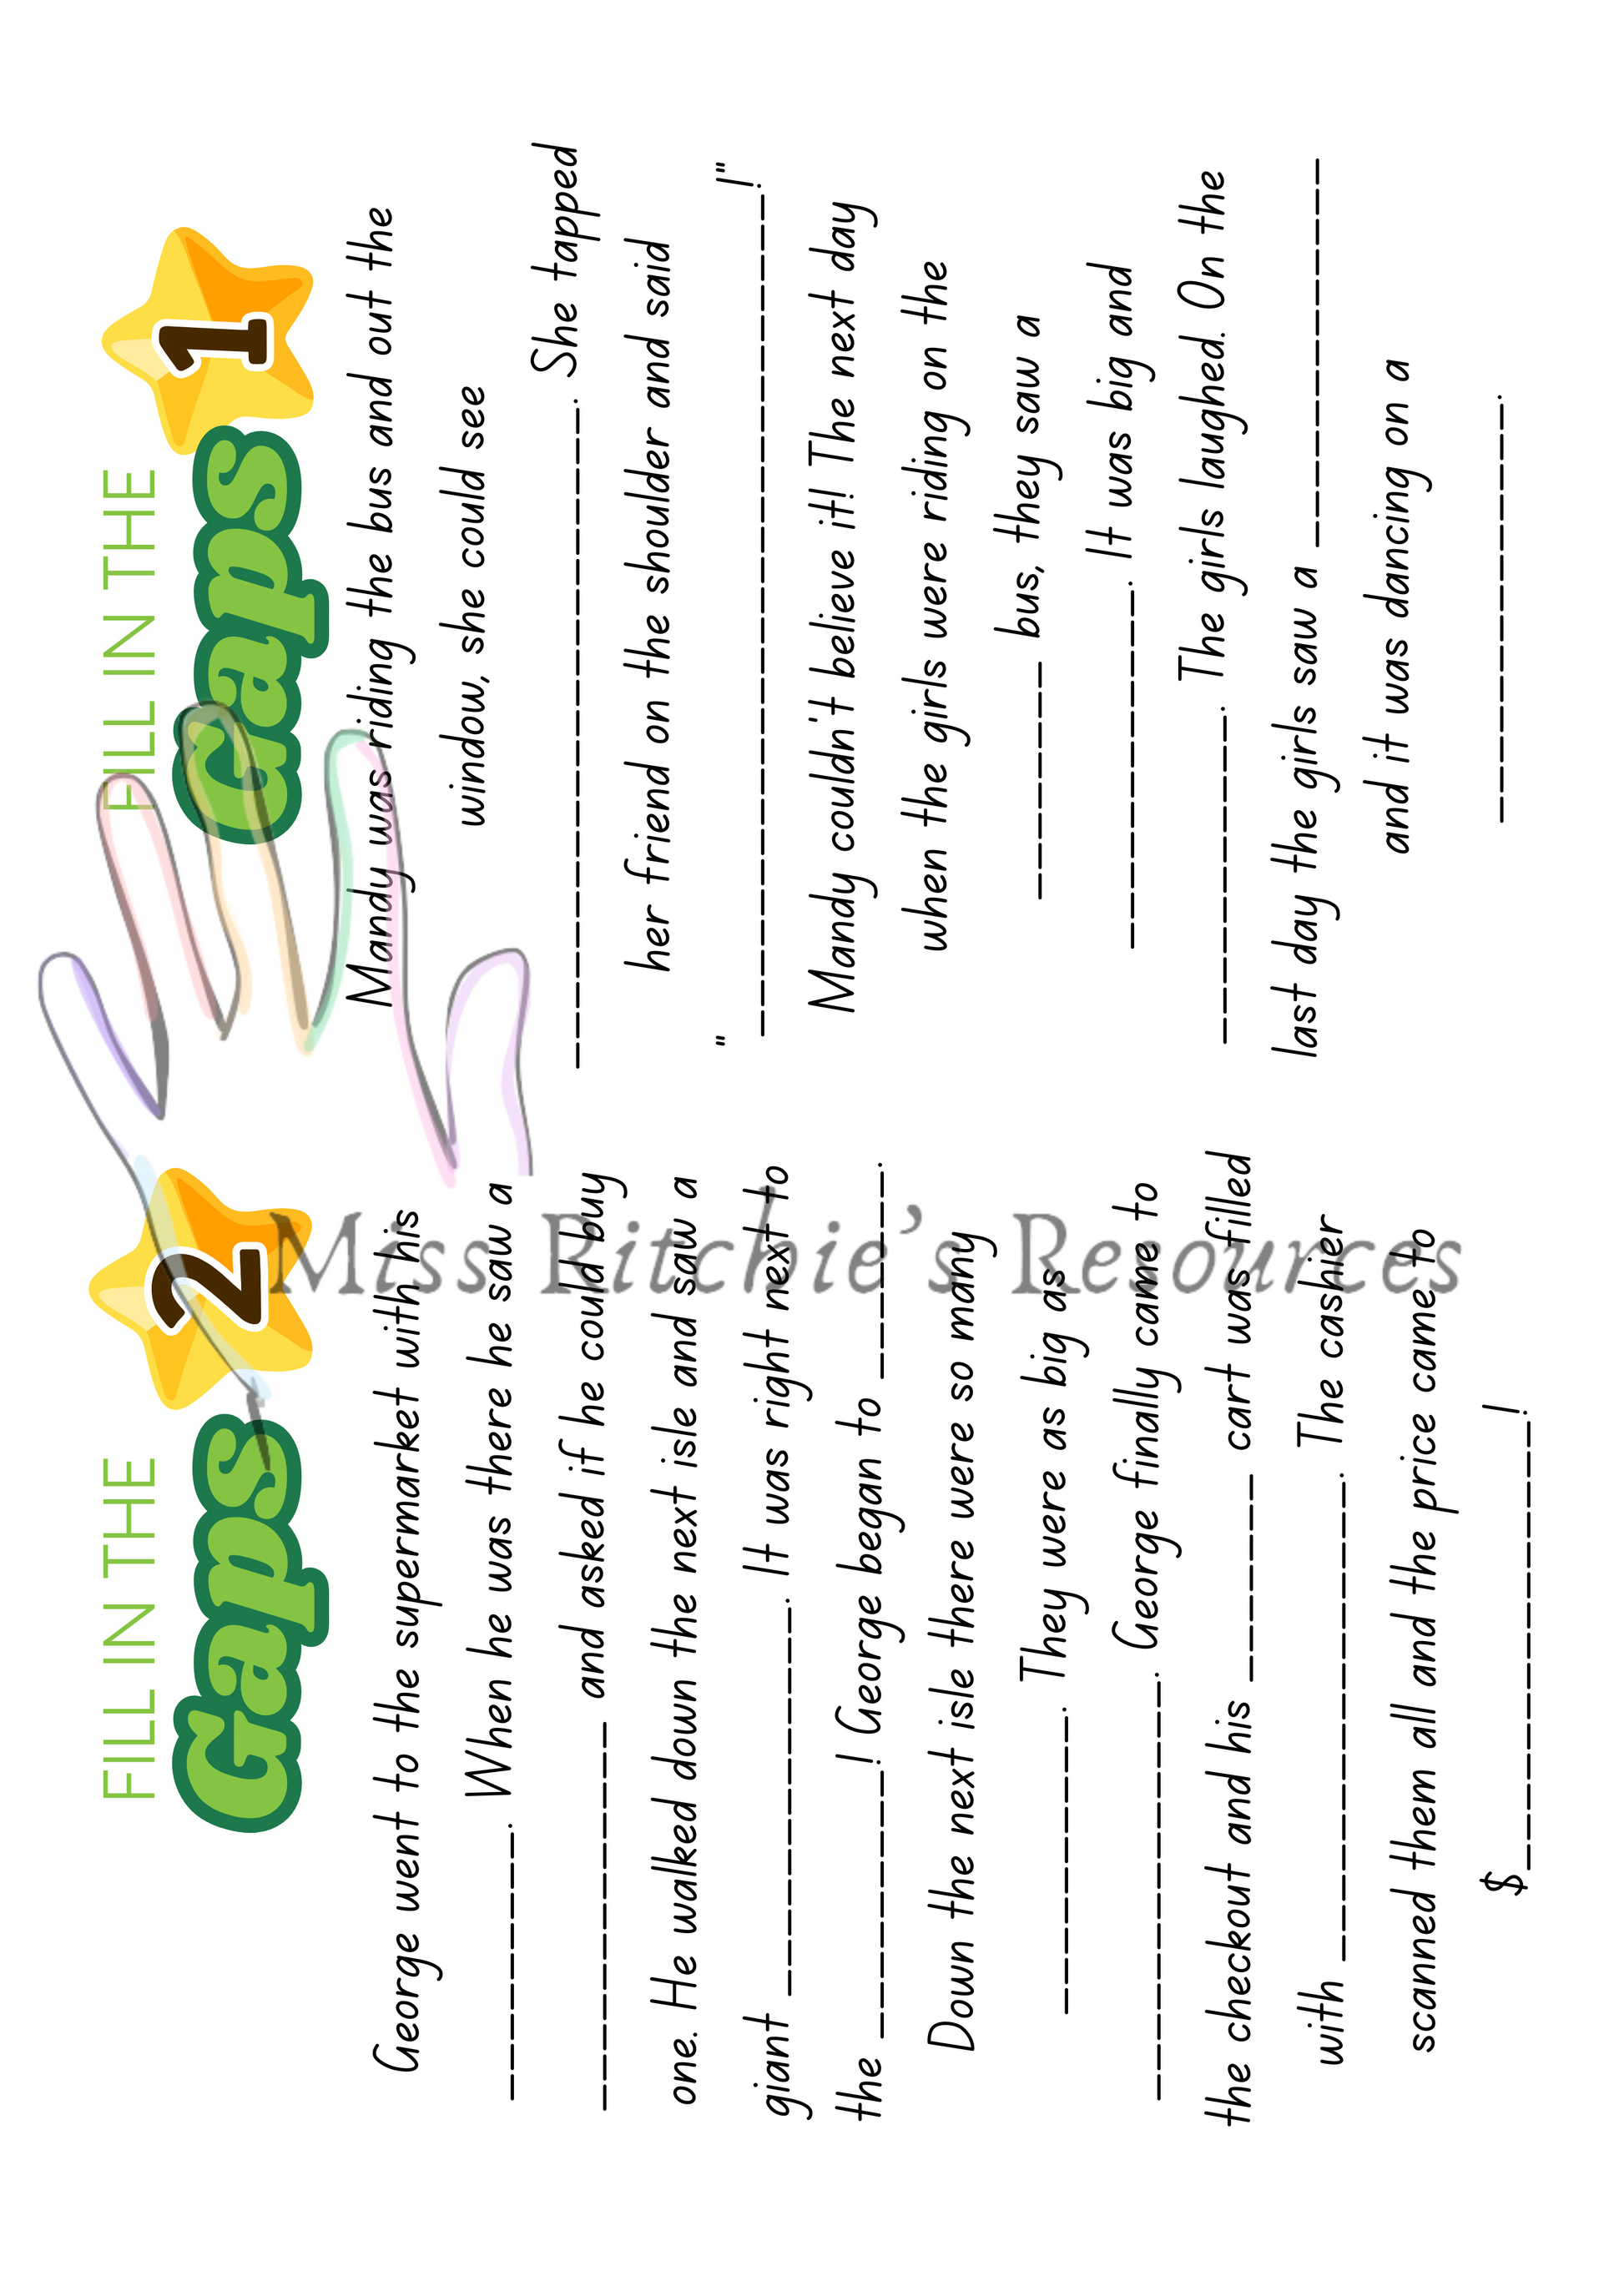 FILL IN THE
Gaps
2
George went to the supermarket with his
__________________. When he was there he saw a
__________________________ and asked if he could buy
one. He walked down the next isle and saw a
giant __________________________. It was right next to
the __________________! George began to ______________.
Down the next isle there were so many
____________________. They were as big as
____________________________. George finally came to
the checkout and his ______________ cart was filled
with ________________________________. The cashier
scanned them all and the price came to
$______________________________!
FILL IN THE
Gaps
1
Mandy was riding the bus and out the
window, she could see
____________________________________________. She tapped
her friend on the shoulder and said
"________________________________________________________!"
Mandy couldn't believe it! The next day
when the girls were riding on the
________________ bus, they saw a
________________________. It was big and
______________________. The girls laughed. On the
last day the girls saw a __________________________
and it was dancing on a
____________________________.
Miss Ritchie's Resources